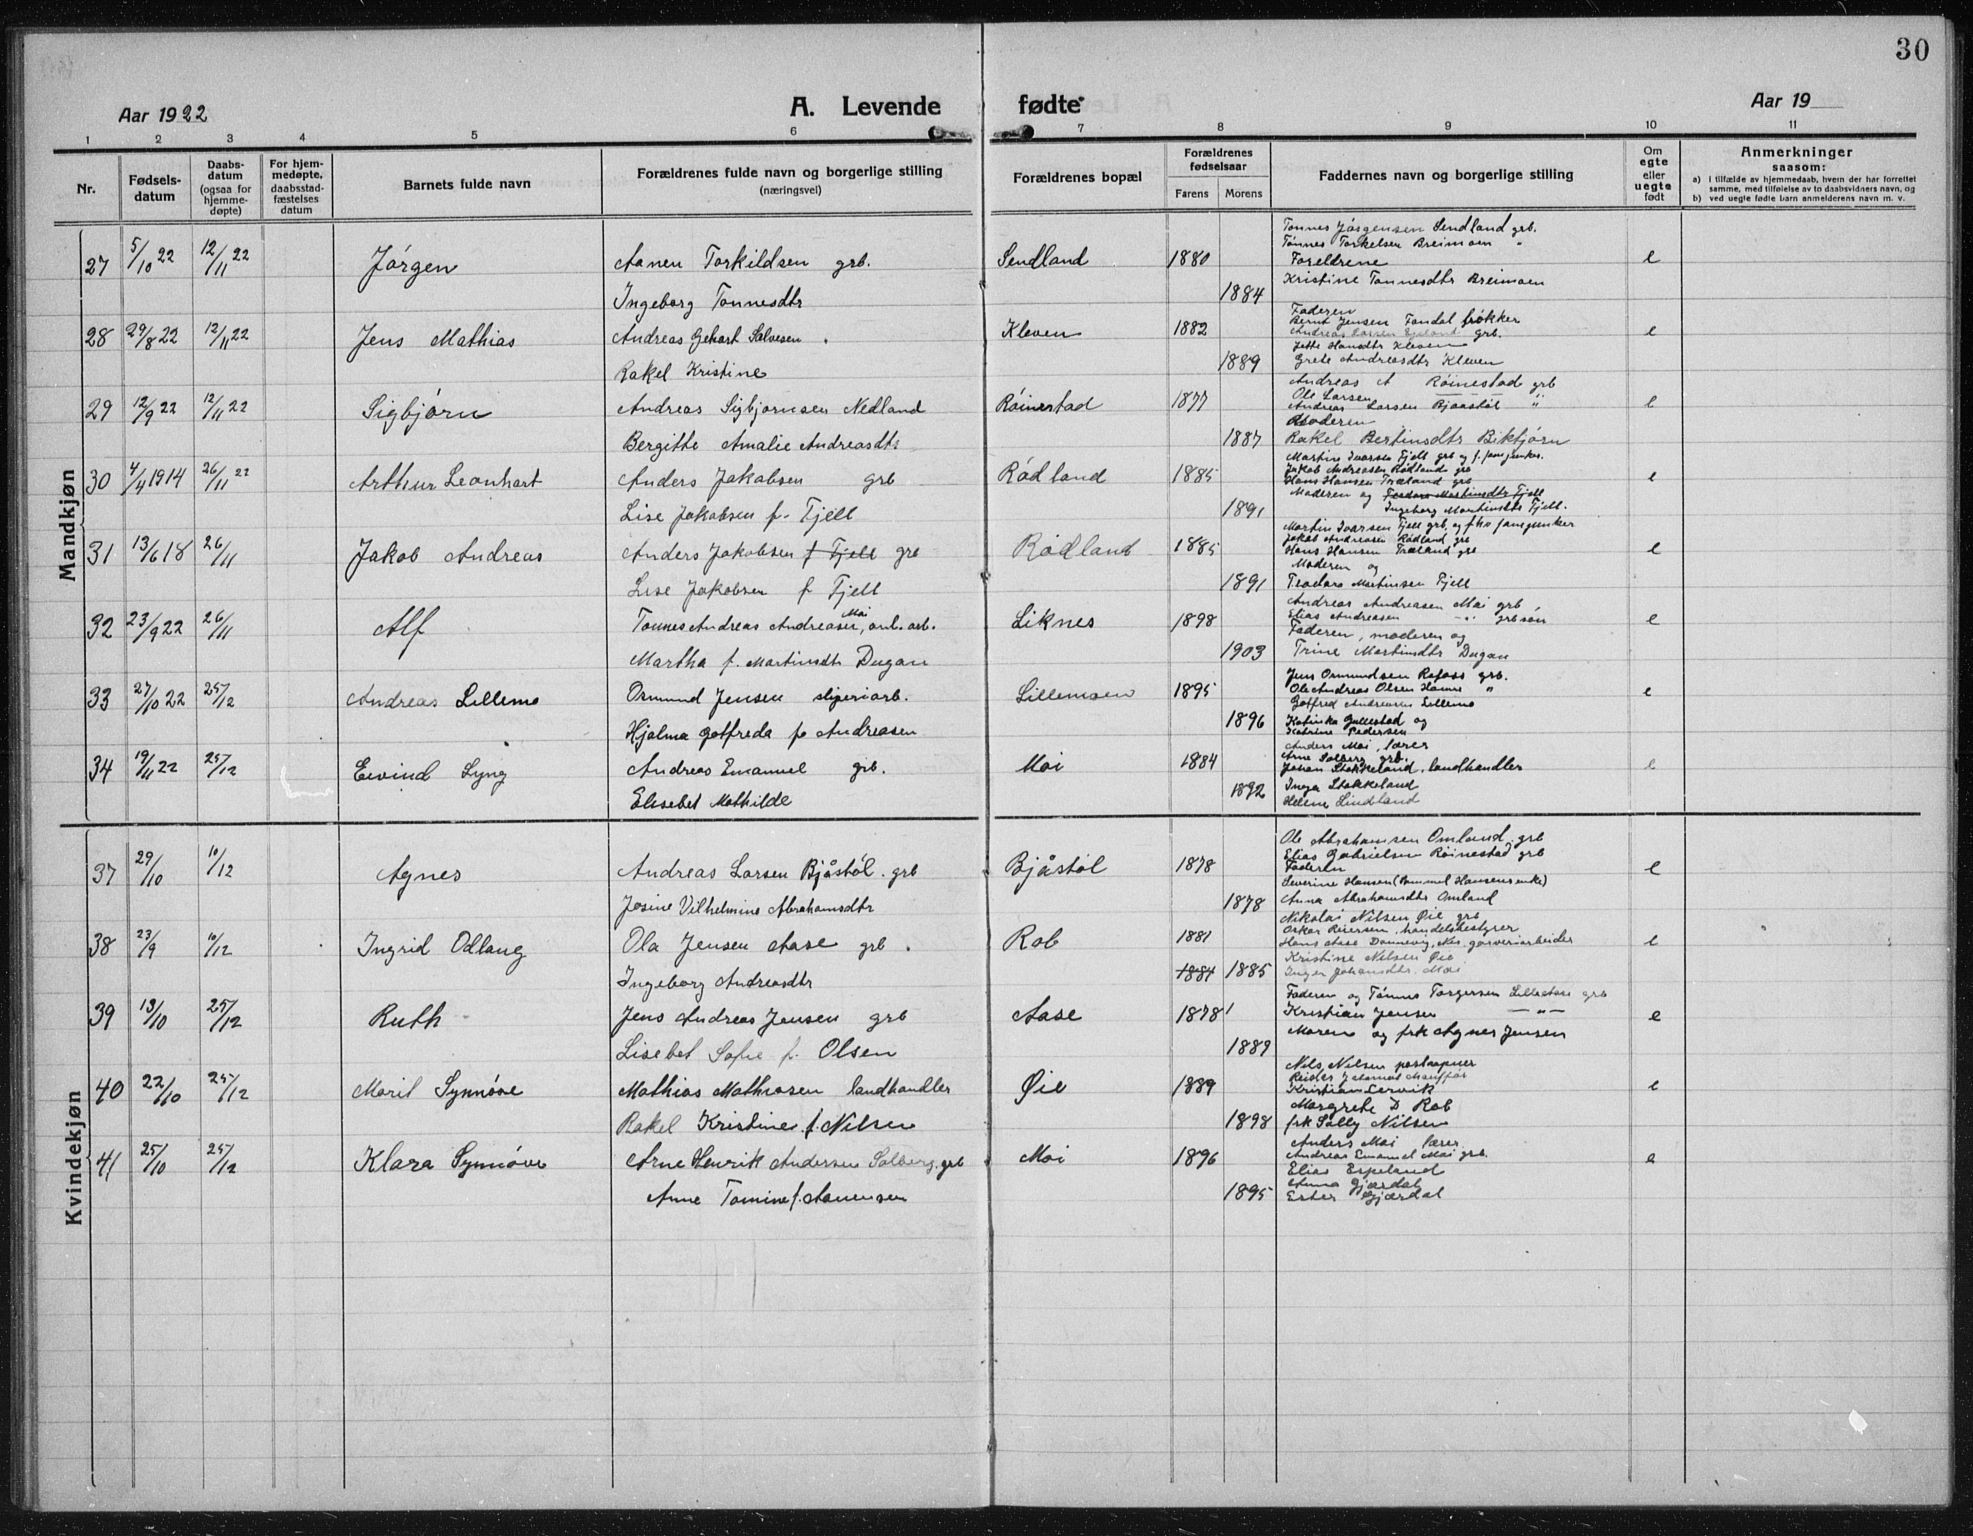 30
Aar 1922 A. Levende fødte Aar 19
1 2 3 4 5 6 7 8 9 10 11
Nr. Fødsels-datum Daabs-datum (ogsaa for hjemme-døpte) For hjem-medøpte, daabsstad-fæstelses datum Barnets fulde navn Forældrenes fulde navn og borgerlige stilling (næringsvei) Forældrenes bopæl Forældrenes fødselsaar Farens Morens Faddernes navn og borgerlige stilling Om egte eller uegte født Anmerkninger saasom:
a) i tilfælde av hjemmedaab, hvem der har forrettet samme, med tilføielse av to daabsvidners navn, og
b) ved uegte fødte barn anmelderens navn m. v.
Mandkjøn
27 5/10 22 12/11 22 Jørgen Aanen Torkildsen grb. Sendland 1880 e
Ingeborg Tønnesdtr 1884
Tønnes Jørgensen Sendland grb.
Tønnes Torkelsen Breimoen "
Foreldrene
Kristine Tønnesdtr Breimoen
28 29/8 22 12/11 22 Jens Mathias Andreas Gehart Salvesen Kleven 1882 e
Rakel Kristine 1889
Faderen
Bernt Jensen Tondal
Andreas Larsen grb.
Jette Hansdtr Kleven
Grete Andreasdtr Kleven
29 12/9 22 12/11 22 Sigbjørn Andreas Sigbjørnsen Nedland Røinestad 1877 e
Bergitte Amalie Andreasdtr 1887
Andreas A Røinestad grb
Ole Larsen
Andreas Larsen Bjaastøl "
Moderen
Rakel Bertinsdtr Biktjørn
30 4/4 1914 26/11 22 Arthur Leonhart Anders Jakobsen grb Rødland 1885 e
Lise Jakobsen f. Fjell 1891
Martin Ivarsen Fjell grb og f.
Jakob Andreasen Rødland grb
Hans Hansen Træland grb
Moderen og Teodora Martinsdtr Fjell
Ingeborg Martinsdtr Fjell.
31 13/6 18 26/11 Jakob Andreas Anders Jakobsen f Fjell grb Rødland 1885 e
Lise Jakobsen f Fjell 1891
Martin Ivarsen Fjell grb. og
Jakob Andreasen Rødland grb
Hans Hansen Træland grb
Moderen og
Teodora Martinsen Fjell
32 23/9 22 26/11 Alf Tønnes Andreas Andreasen Moi, anl. arb. Liknes 1898 e
Martha f. Martinsdtr Dugan 1903
Andreas Andreasen Moi grb
Elias Andreasen -"- grbsøn
Faderen, moderen og
Trine Martinsdtr Dugan
33 27/10 22 25/12 Andreas Lillemo Ormund Jensen sliperiarb. Lillemoen 1895 e
Hjalma Gotfreda f. Andreasen 1896
Jens Ormundsen Rafoss grb.
Ole Andreas Olsen "
Gotfred Andreasen Lillemo
Katinka Gullestad og
Katrine Pedersen
34 19/11 22 25/12 Eivind Lyng Andreas Emanuel grb. Moi 1884 e
Elisebet Mathilde 1892
Anders Moi, lærer
Arne Solberg grb.
Johan Stokkeland, landhandler
Inga Stokkeland
Helene Lindland
Kvindekjøn
37 29/10 10/12 Agnes Andreas Larsen Bjåstøl. grb Bjåstøl 1878 e
Josine Vilhelmine Abrahamsdtr 1878
Ole Abrahamsen Omland. grb
Elias Gabrielsen Røinestad grb
Faderen
Severine Hansen
Anna Abrahamsdtr Omland
38 23/9 10/12 Ingrid Odlaug Ola Jensen Aase grb. Rob 1881 e
Ingeborg Andreasdtr 1884 1885
Nikolai Nilsen Øie grb
Oskar Reiersen, handelsbestyrer
Hans Aase garveriarbeider
Kristine Nilsen Øie
Inger Johansdtr. Moi
39 13/10 25/12 Ruth Jens Andreas Jensen grb Aase 1878 e
Lisebet Sofie f. Olsen 1889
Faderen og Tønnes Torgersen grb
Kristian Jensen -"-
Moren og frk Agnes Jensen
40 22/10 25/12 Marit Synnøve Mathias Mathiasen landhandler Øie 1889 e
Rakel Kristine f. Nilsen 1898
Nils Nilsen postaapner
Kristian Lervik
Margrete D Rob
frk Sally Nilsen
41 25/10 25/12 Klara Synnøve Arne Henrik Andersen Solberg, grb Moi 1896 e
Anne Tomine f. Aanensen 1895
Anders Moi lærer
Andreas Emanuel Moi grb.
Elias Espeland
Anna Gjærdal
Ester Gjærdal